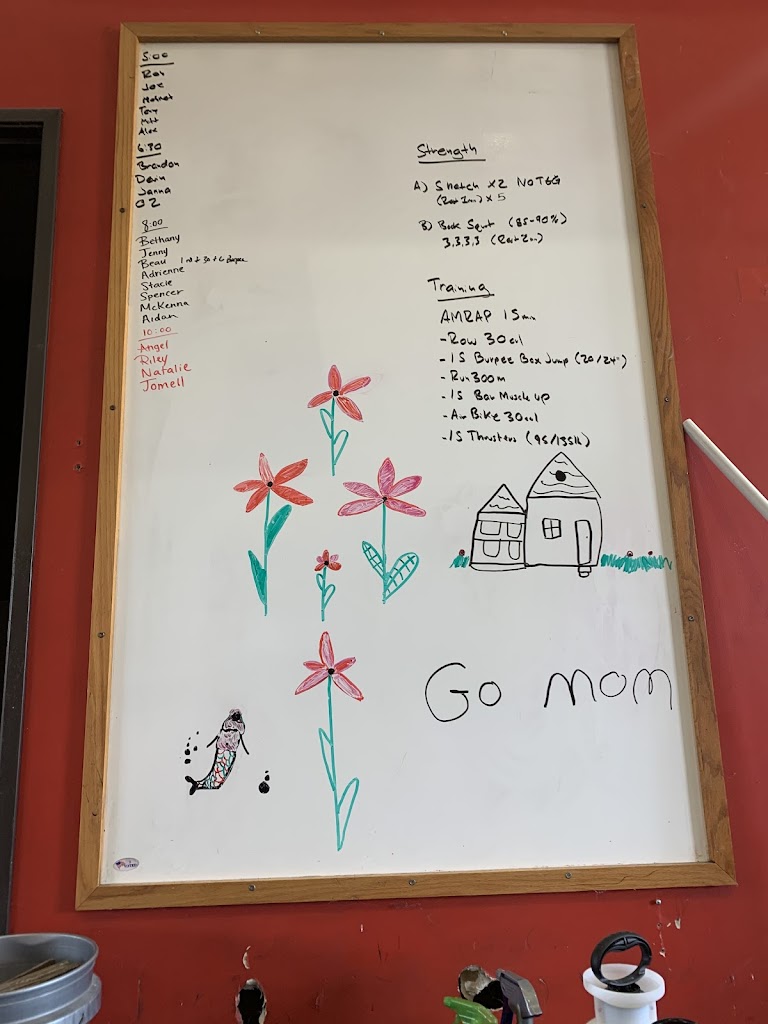 5:00
Ron
Joe
Terry
Matt
Alex
6:30
Brandon
Devin
Janna
OZ
8:00
Bethany
Jenny
Beau
Adrienne
Stacie
Spencer
McKenna
Aidan
10:00
Angel
Riley
Natalie
Jomell
Strength
A) Snatch x2 No T&G
(Rest 2m) x 5
B) Back Squat (85-90%)
3,3,3,3 (Rest 2m)
Training
AMRAP 15 min
- Row 30 cal
- 15 Burpee Box Jump (20/24")
- Run 300m
- 15 Bar Muscle up
- Air Bike 30 cal
- 15 Thrusters (95/135lb)
Go mom